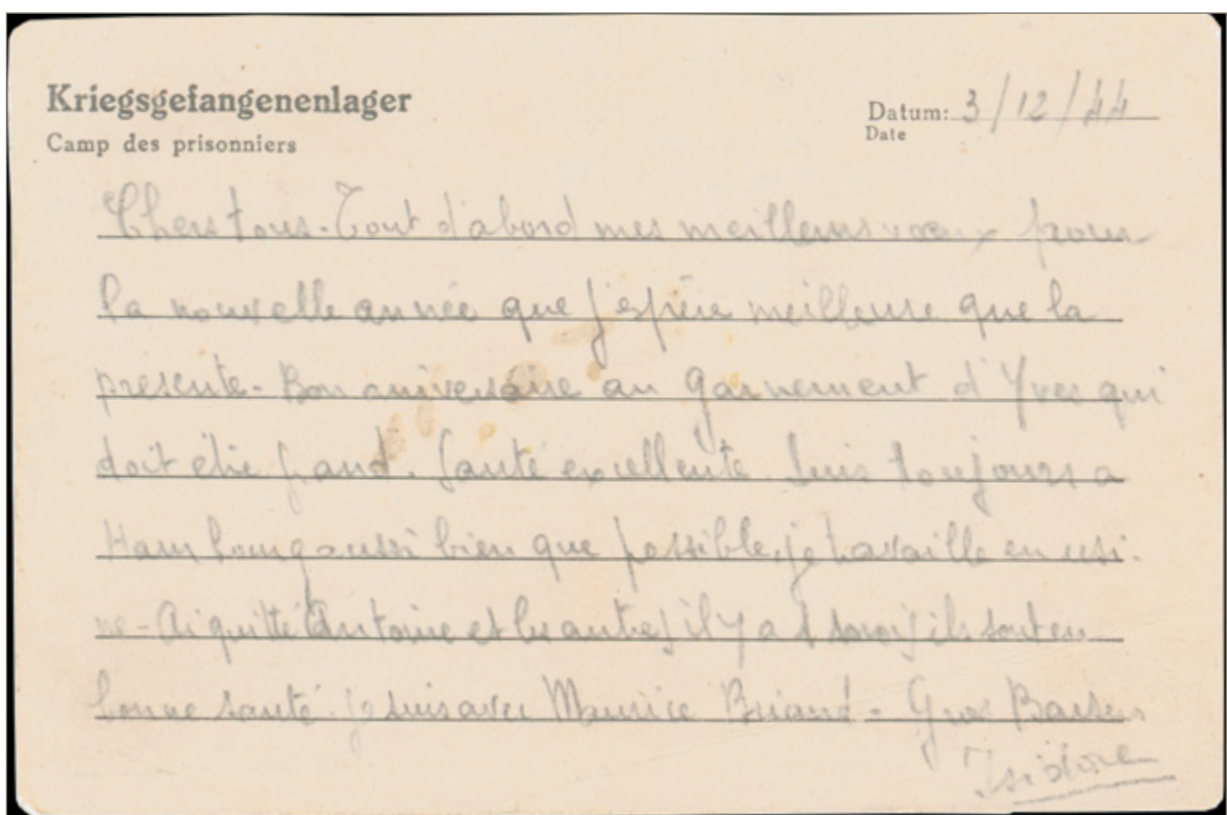 Kriegsgefangenenlager
Camp des prisonniers
Datum: 3/12/44
Date
Chers tous - Tout d'abord mes meilleurs vœux pour
la nouvelle année que j'espère meilleure que la
présente - Bon aniversaire au garnement d'Yves qui
doit être grand. Santé excellente. Suis toujours a
Hambourg aussi bien que possible, je travaille en usi-
ne - Ai quitté Antoine et les autres il y a mois, ils sont en
bonne santé. je suis avec Maurice Briand - Gros Baisers
Isidore